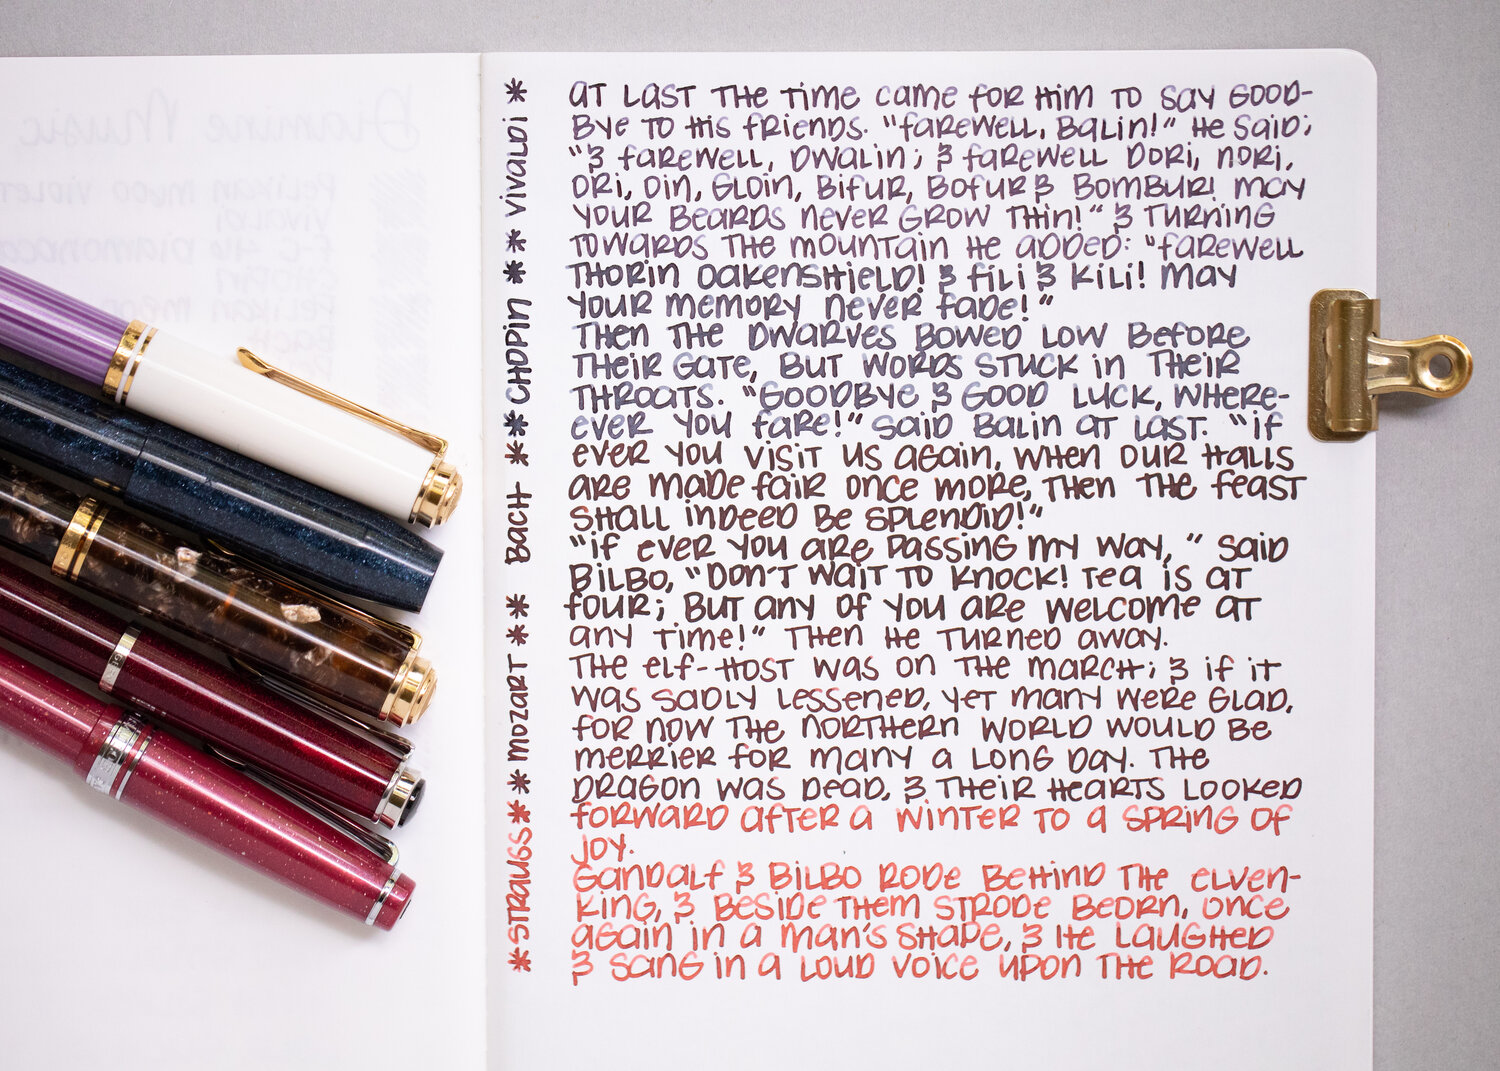 Diamine Music
Pelikan M600 Violet
Vivaldi
Pelikan M800
Bach
* VIVALDI *
* CHOPIN *
* BACH *
* MOZART *
* STRAUSS *
AT LAST THE TIME CAME FOR HIM TO SAY GOOD-
BYE TO HIS FRIENDS. "FAREWELL, BALIN!" HE SAID;
"& FAREWELL, DWALIN; & FAREWELL DORI, NORI,
ORI, OIN, GLOIN, BIFUR, BOFUR & BOMBUR! MAY
YOUR BEARDS NEVER GROW THIN!" & TURNING
TOWARDS THE MOUNTAIN HE ADDED: "FAREWELL
THORIN OAKENSHIELD! & FILI & KILI! MAY
YOUR MEMORY NEVER FADE!"
THEN THE DWARVES BOWED LOW BEFORE
THEIR GATE, BUT WORDS STUCK IN THEIR
THROATS. "GOODBYE & GOOD LUCK, WHERE-
EVER YOU FARE!" SAID BALIN AT LAST. "IF
EVER YOU VISIT US AGAIN, WHEN OUR HALLS
ARE MADE FAIR ONCE MORE, THEN THE FEAST
SHALL INDEED BE SPLENDID!"
"IF EVER YOU ARE PASSING MY WAY," SAID
BILBO, "DON'T WAIT TO KNOCK! TEA IS AT
FOUR; BUT ANY OF YOU ARE WELCOME AT
ANY TIME!" THEN HE TURNED AWAY.
THE ELF-HOST WAS ON THE MARCH; & IF IT
WAS SADLY LESSENED, YET MANY WERE GLAD,
FOR NOW THE NORTHERN WORLD WOULD BE
MERRIER FOR MANY A LONG DAY. THE
DRAGON WAS DEAD, & THEIR HEARTS LOOKED
FORWARD AFTER A WINTER TO A SPRING OF
JOY.
GANDALF & BILBO RODE BEHIND THE ELVEN-
KING, & BESIDE THEM STRODE BEORN, ONCE
AGAIN IN A MAN'S SHAPE, & HE LAUGHED
& SANG IN A LOUD VOICE UPON THE ROAD.